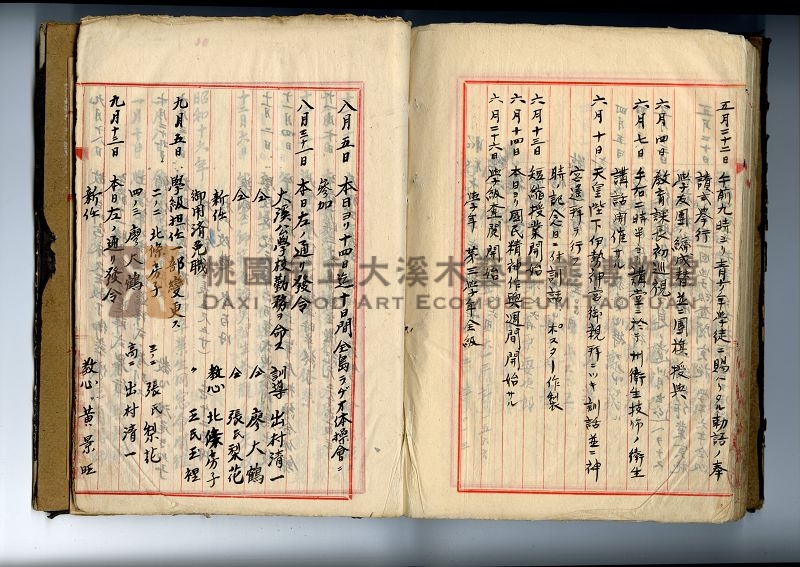 五月二十二日 午前九時ヨリ青少年学徒ニ賜ハリタル勅語ノ奉
讀式挙行
学友團結成替並ニ團旗授與
六月四日 教育課長初巡視
六月七日 午后二時半ヨリ講堂ニ於テ州衛生技師ノ衛生
講話開催サル
六月十日 天皇陛下伊勢神宮御親拝ニツキ訓話並ニ神
宮遥拝ヲ行フ
時ノ記念日ニ付訓話、ポスター作製
六月十三日 短縮授業開始
六月十四日 本日ヨリ國民精神作興週間開始サル
六月二十六日 学級査閲開始
学年 第二学年全級
八月五日 本日ヨリ十四日迄十日間全島ラヂオ体操會ニ
参加
八月三十一日 本日左ノ通リ發令
大溪公學校勤務ヲ命ズ 訓導 出村清一
仝 仝 廖大鶴
仝 仝 張氏梨花
新任 教心 北條房子
御用済免職 〃 王氏玉裡
九月五日 學級担任一部変更ス
二ノ二 北條房子 三ノ二 張氏梨花
四ノ三 廖大鶴 高二 出村清一
九月十三日 本日左ノ通リ發令
新任 教心 黄景旺
桃園市立大溪木藝生態博物館
DAXI WOOD ART ECOMUSEUM, TAOYUAN